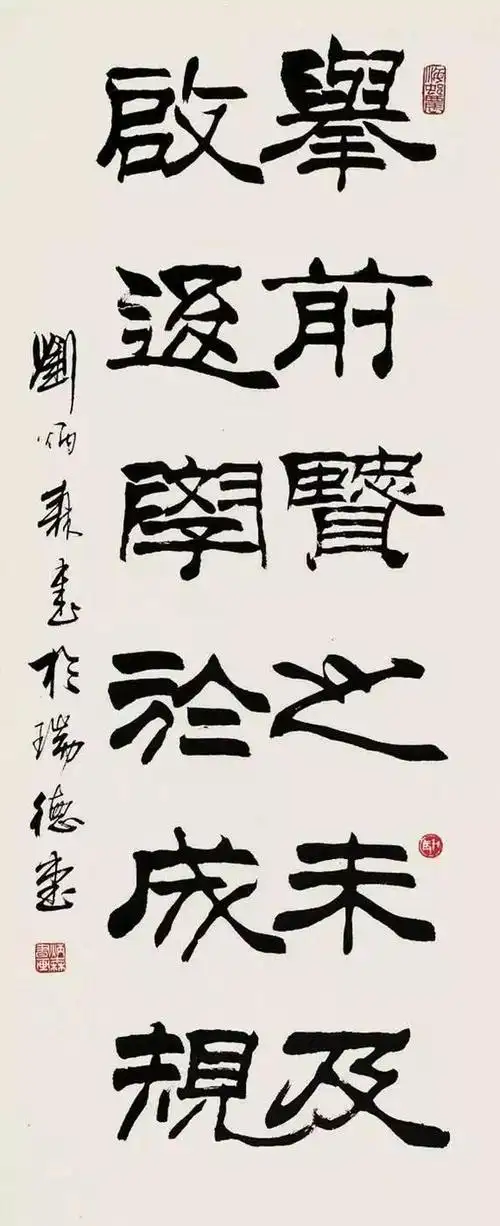 舉前賢之未及
啟後學於成規
劉炳森書於瑞德
炳森書畫